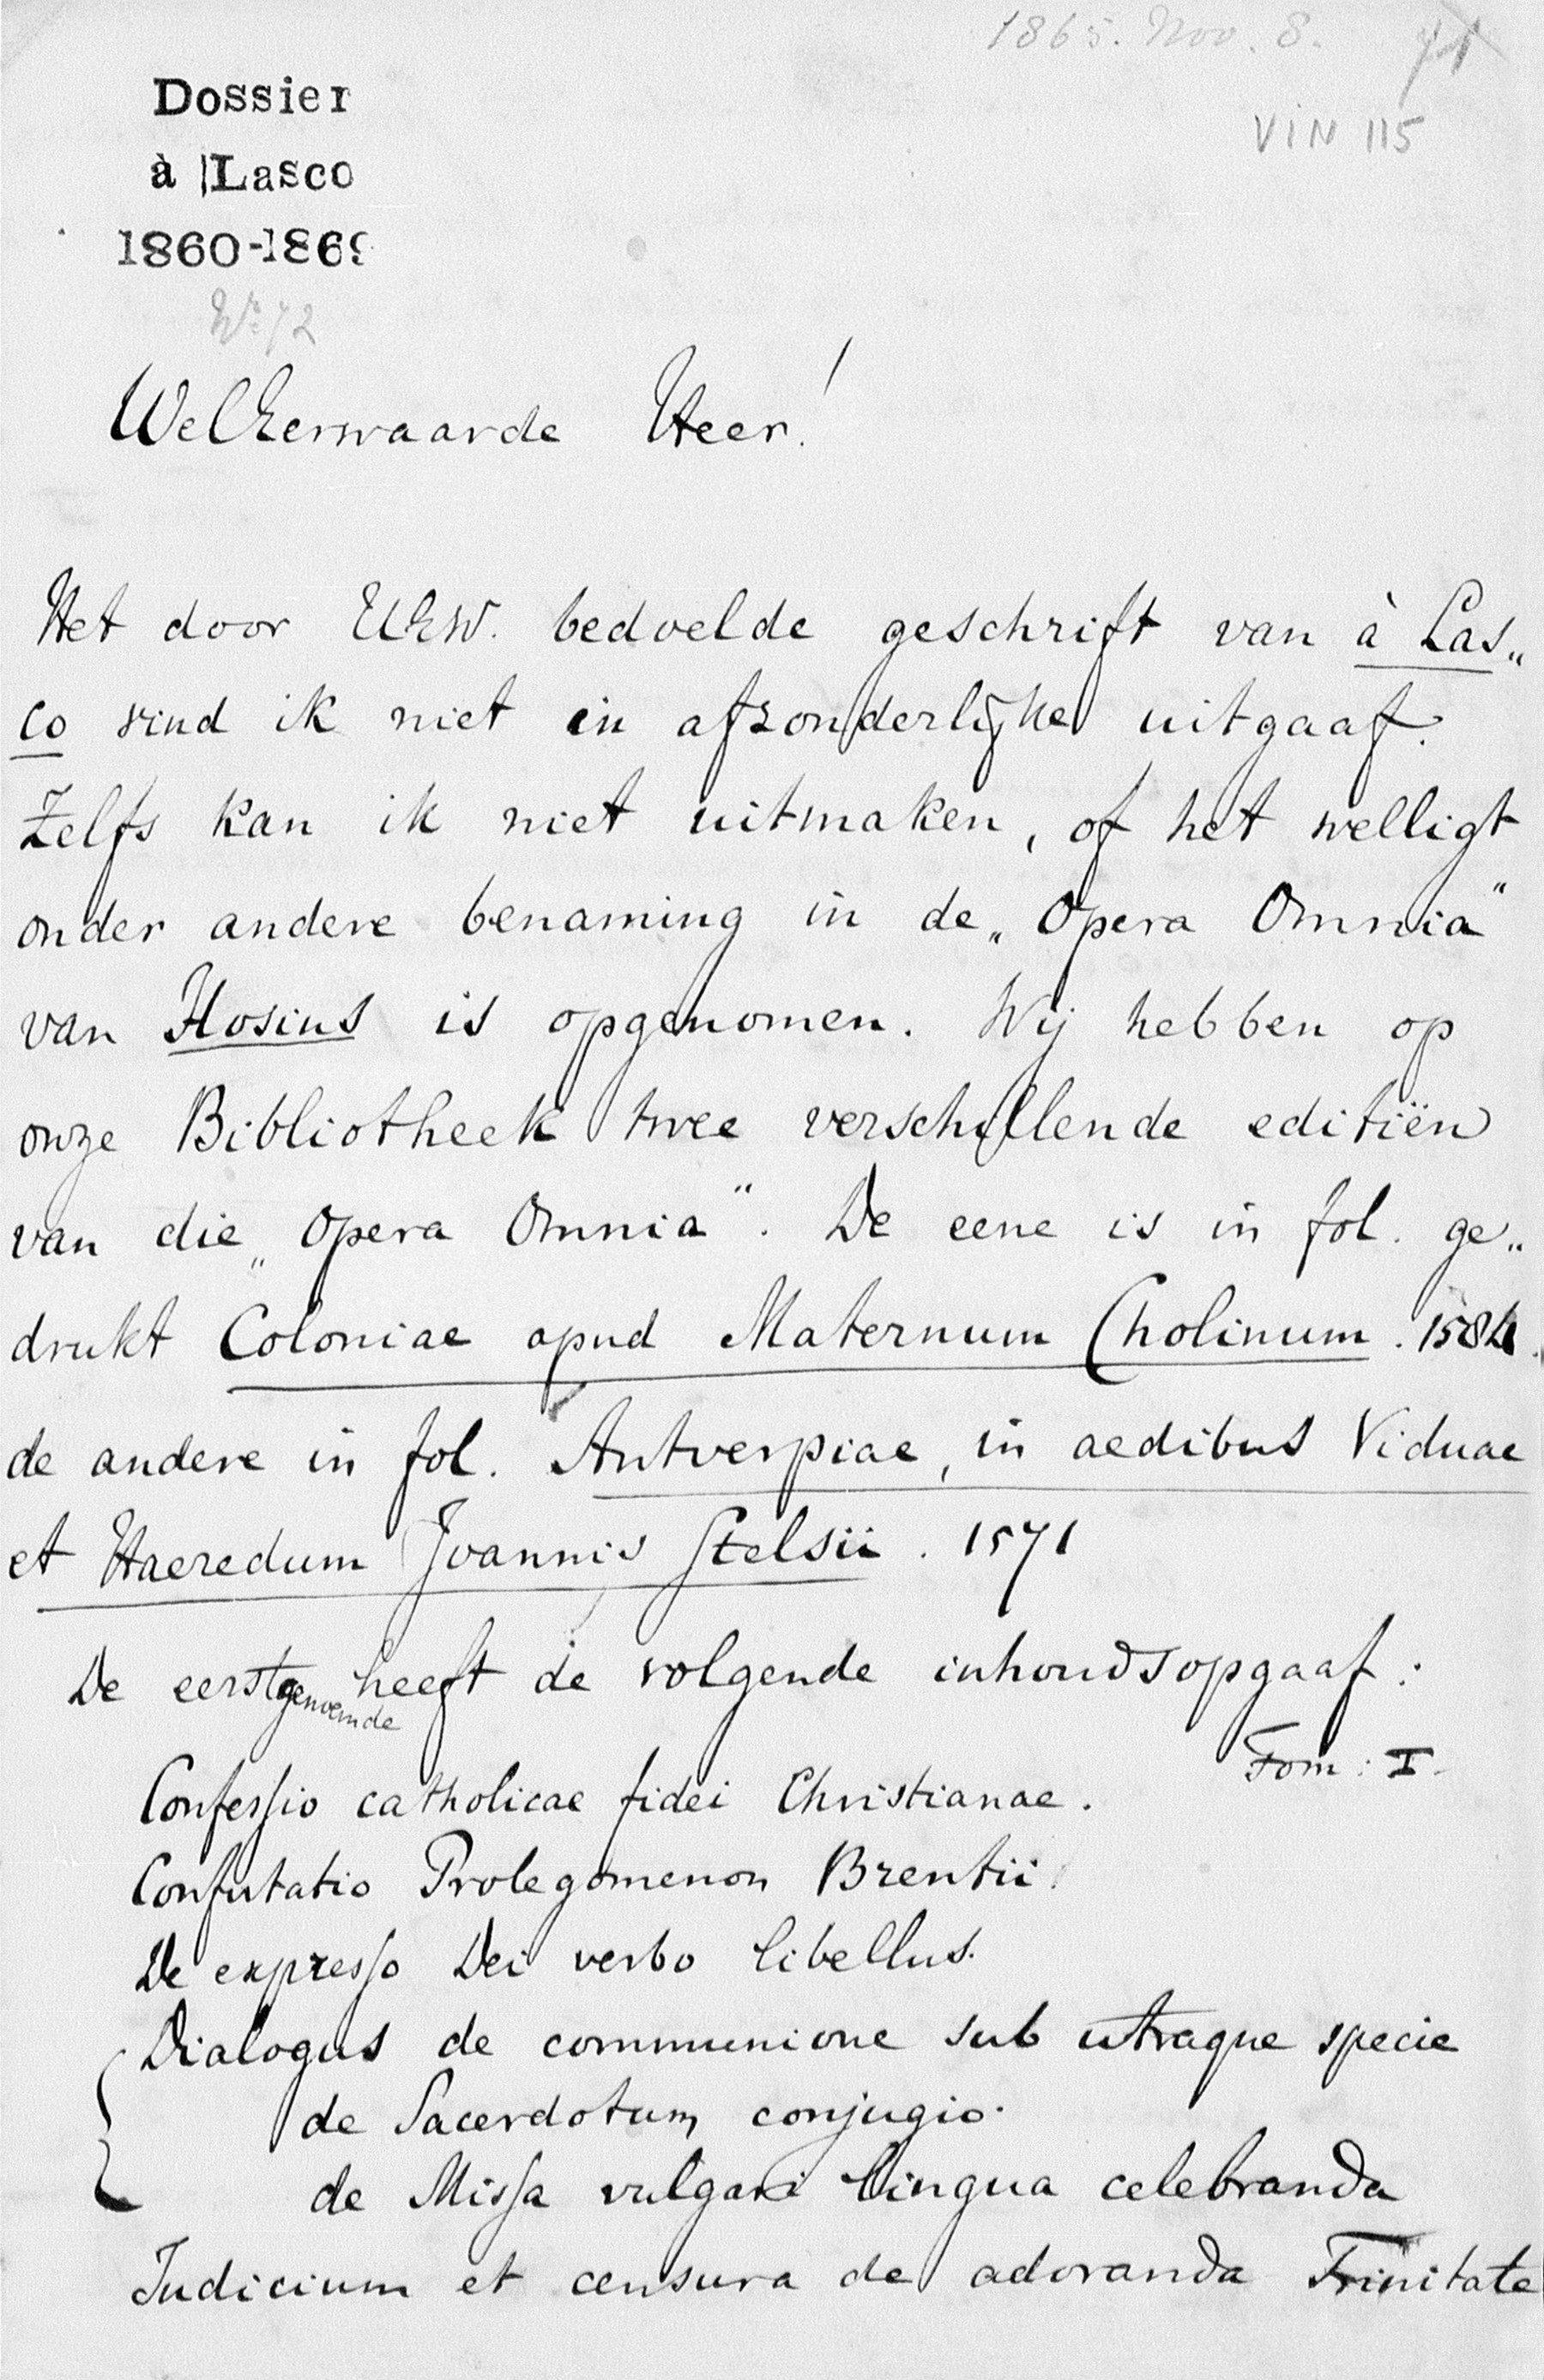 1865. Nov. 8. 71
VIN 115
Dossier
à Lasco
1860-1869
No 72
WelEerwaarde Heer!
Het door UEW. bedoelde geschrift van à Las„
co vind ik niet in afzonderlijke uitgaaf.
Zelfs kan ik niet uitmaken, of het welligt
onder andere benaming in de „Opera Omnia"
van Hosius is opgenomen. Wij hebben op
onze Bibliotheek twee verschillende editiën
van die „Opera Omnia". De eene is in fol. ge„
drukt Coloniae apud Maternum Cholinum. 1584.
de andere in fol. Antverpiae, in aedibus Viduae
et Haeredum Joannis Stelsii. 1571
De eerstgenoemde heeft de volgende inhoudsopgaaf:
Tom: I.
Confessio catholicae fidei Christianae.
Confutatio Prolegomenon Brentii.
De expresso Dei verbo libellus.
Dialogus de communione sub utraque specie
de Sacerdotum conjugio.
de Missa vulgari lingua celebranda
Judicium et censura de adoranda Trinitate